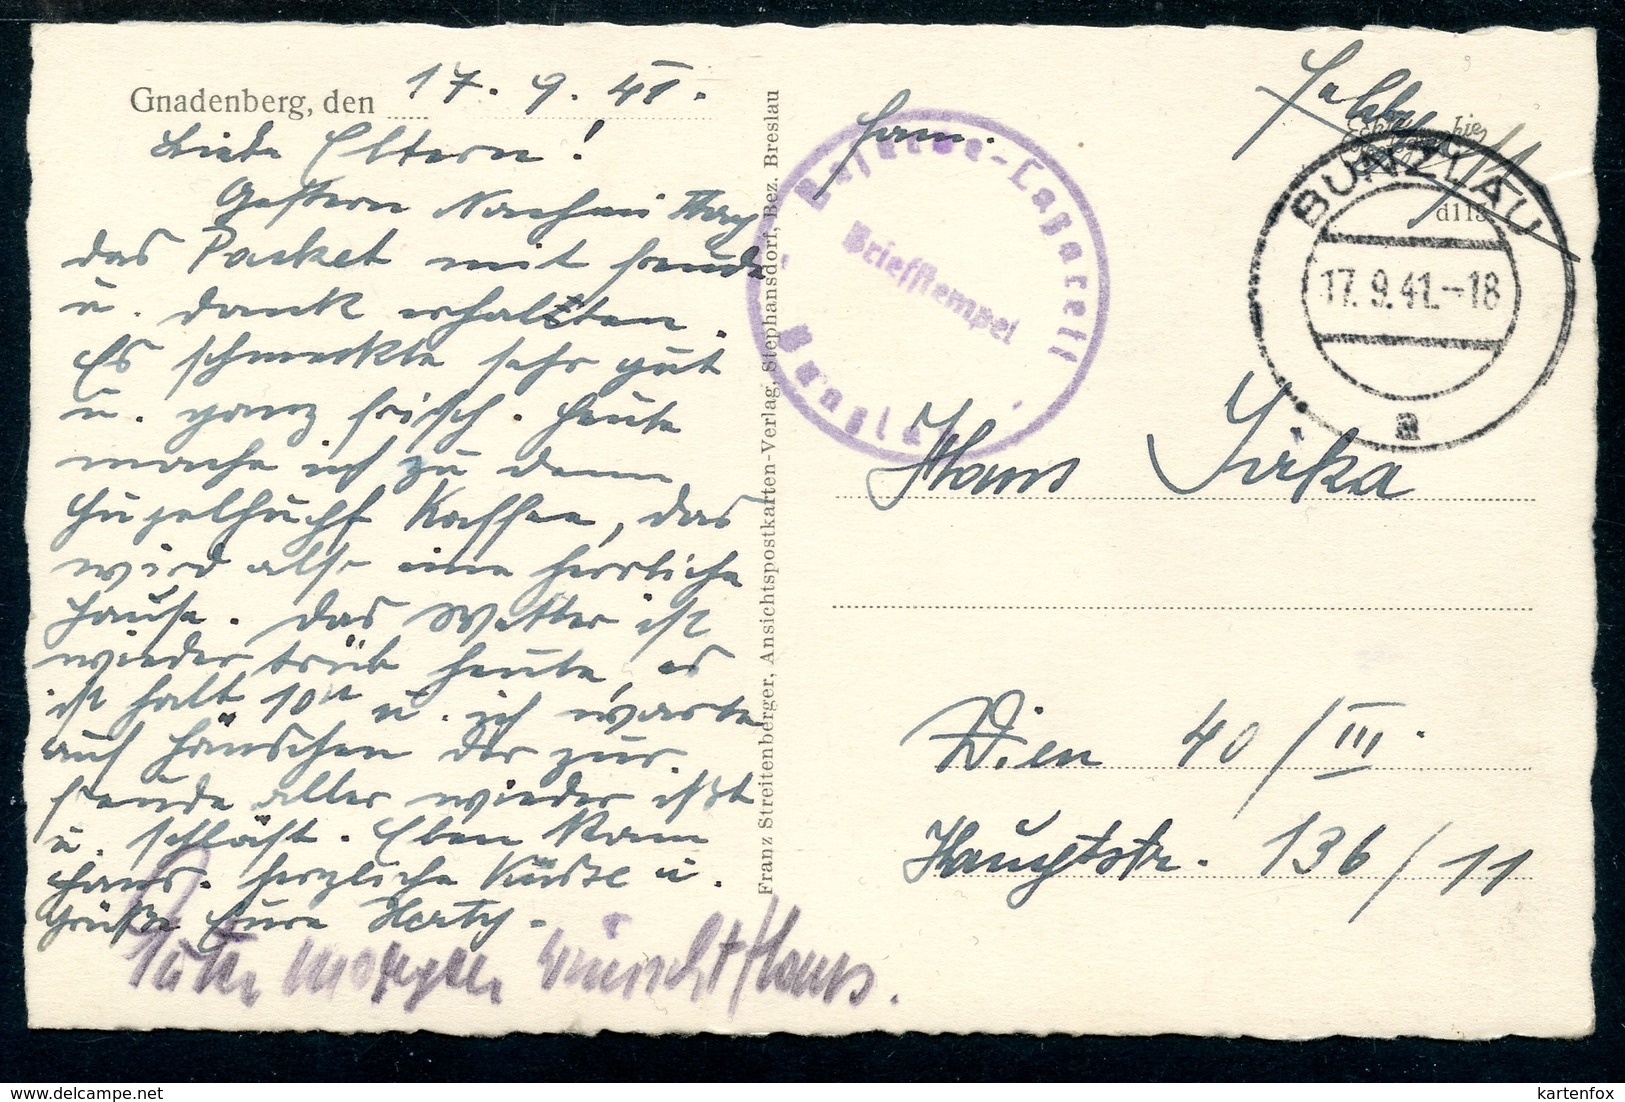 Gnadenberg, den 17. 9. 41.
Liebe Eltern!
Gestern Nachmittag
das Packet mit Freude
u. Dank erhalten.
Es schmeckte sehr gut
u. ganz frisch. Heute
mache ich zu dem
Gugelhupf Kaffee, das
wird also eine herrliche
Jause. Das Wetter ist
wieder trüb heute, es
ist halt 10° u. ich warte
auf Hänschen der zur
Freude aller wieder ißt
u. schläft. Eben kam
Hans. Herzliche Küsse u.
Grüße Eure Herty.
Guten morgen wünscht Hans.
Franz Streitenberger, Ansichtspostkarten-Verlag, Stephansdorf, Bez. Breslau
Reserve-Lazarett
Briefstempel
Bunzlau
Fam.
hier
d113
BUNZLAU
17. 9. 41.-18
a
Hans Jirka
Wien 40/III.
Hauptstr. 136/11
kartenfox
delcampe.net